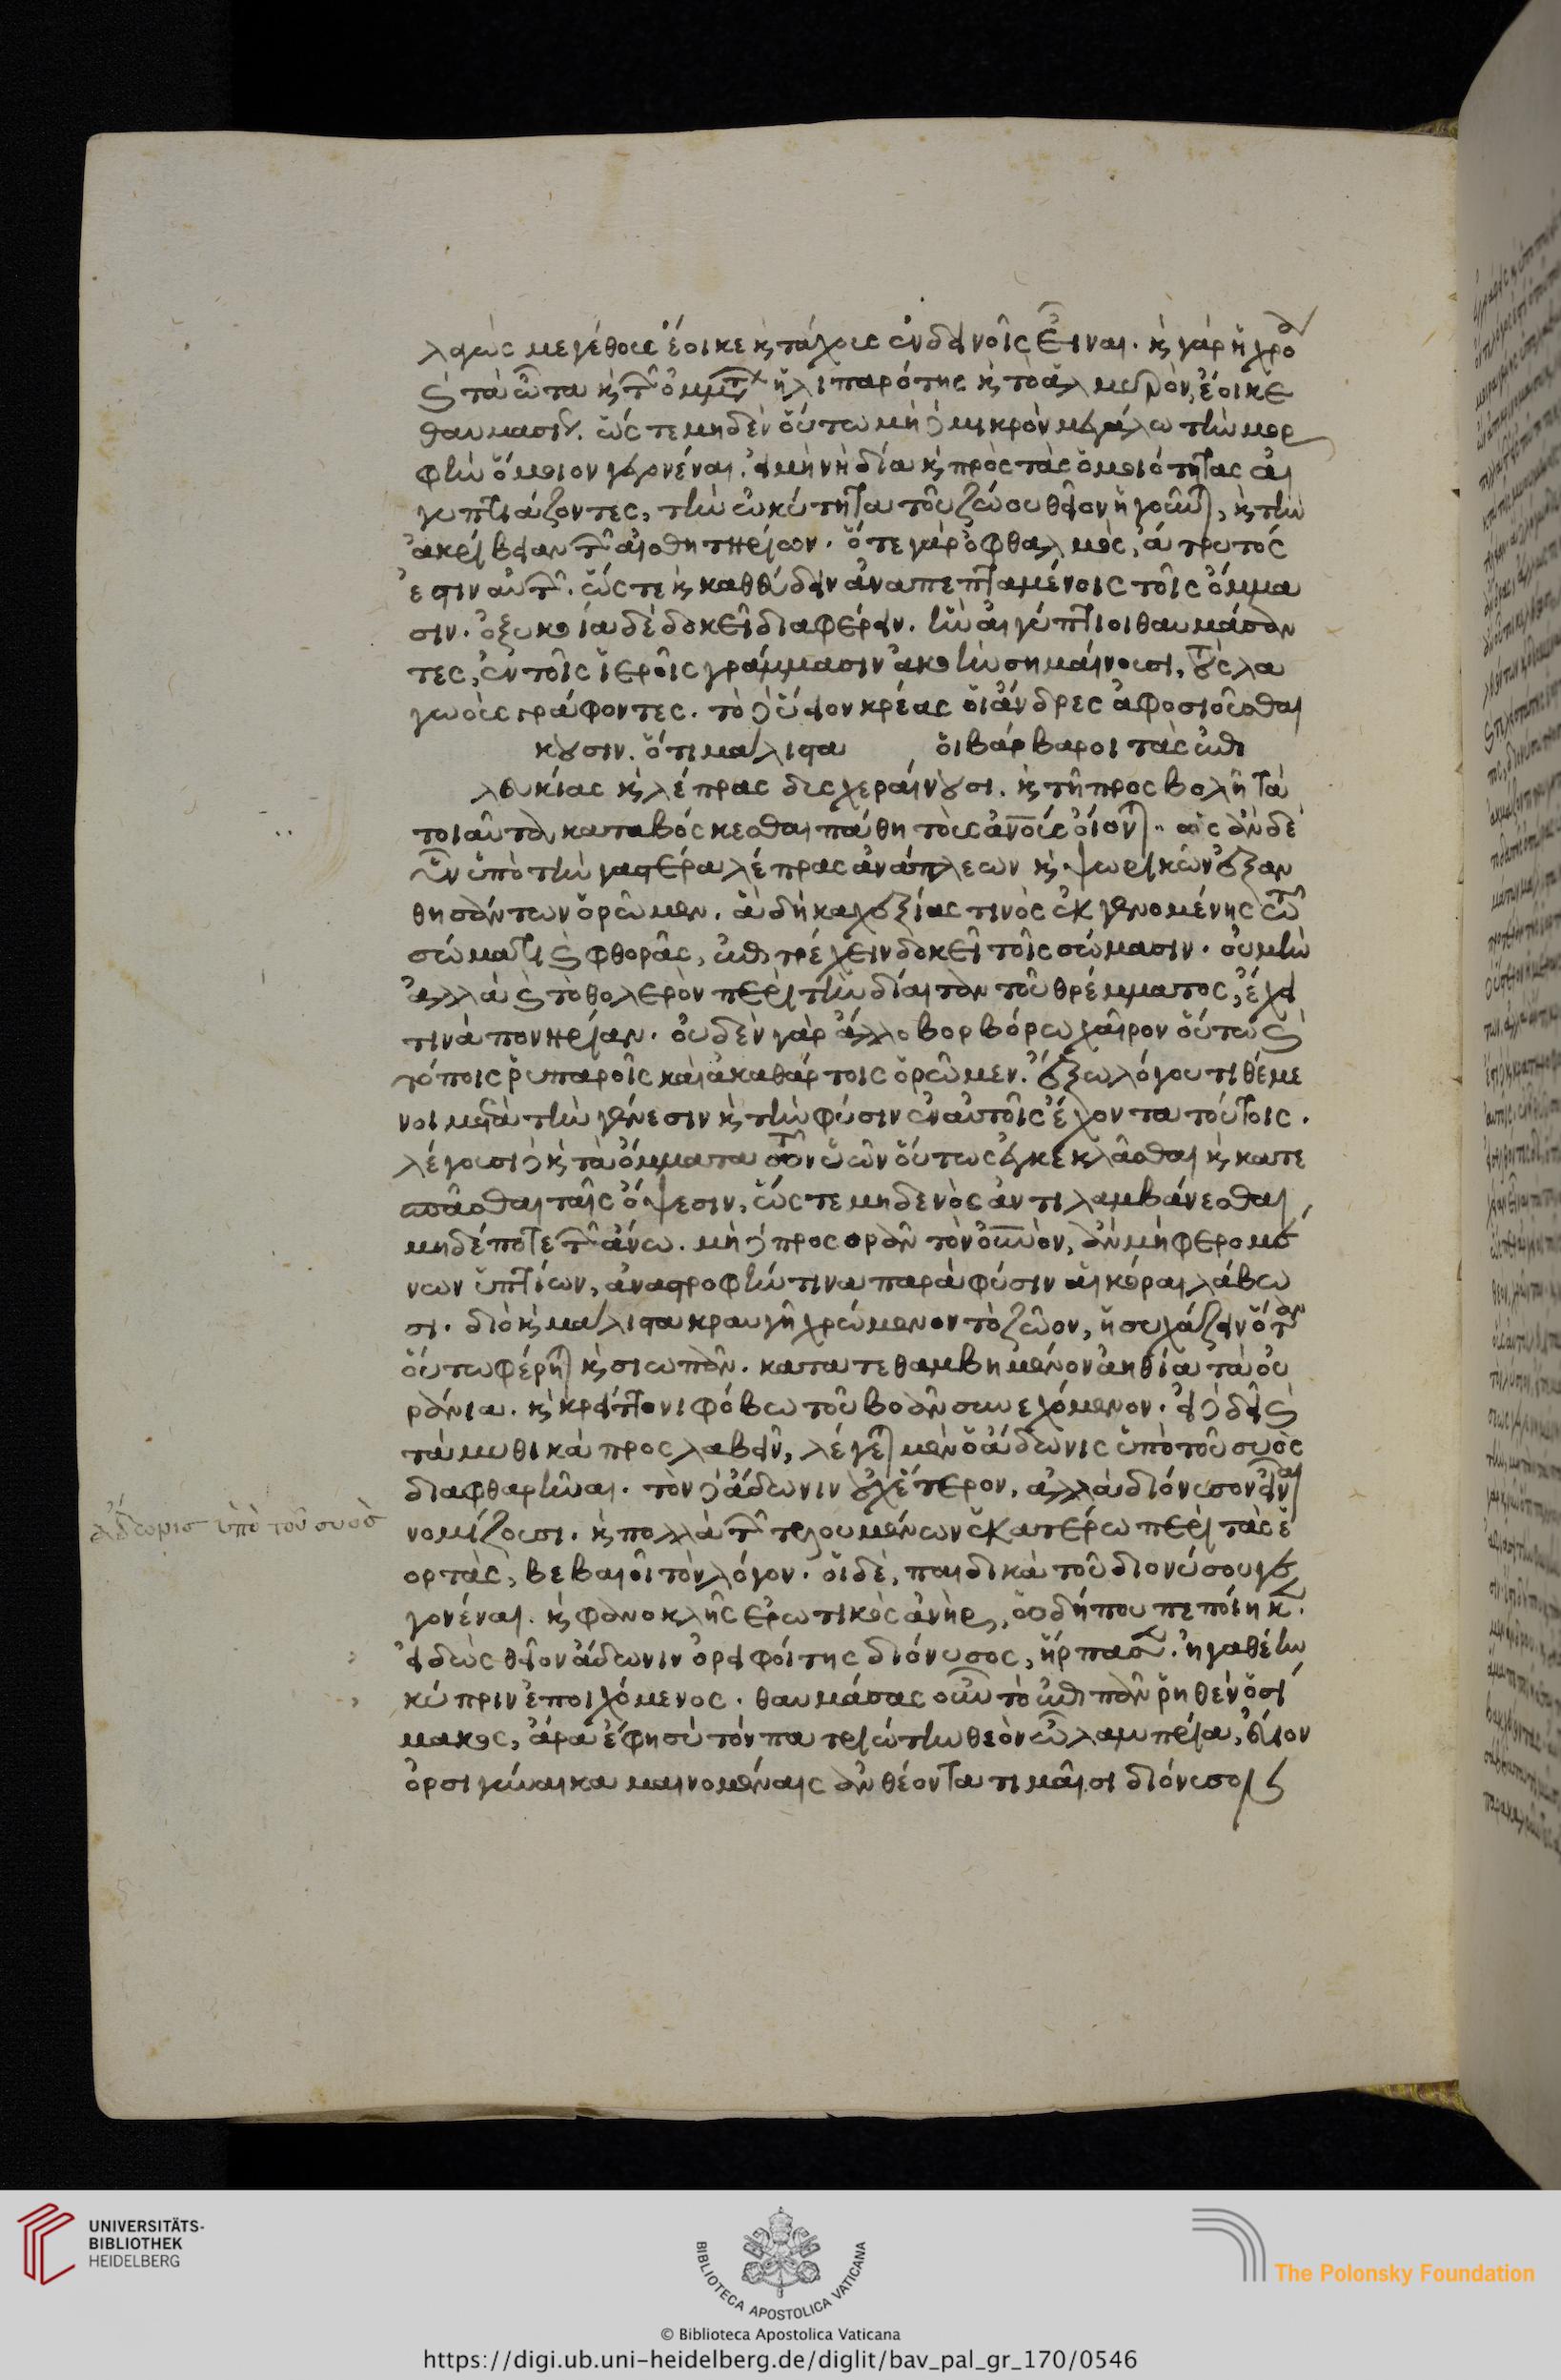 λαγὼς μεγέθους ἔοικε κ τάχους ἐνδεῖν ὄνος εἶναι. κ γὰρ ἡ χρόα
κ τὰ ὦτα κ τῶν ὀμμάτων ἡ λιπαρότης κ τὸ ἁλμυρὸν, ἔοικε
θαυμασίως. ὥς τε μηδὲν οὕτω μὴ δὲ μικρὸν μεγάλω τὴν μορ
φὴν ὅμοιον γεγονέναι. εἰ μὴ νὴ δία κ πρὸς τὰς ὁμοιότητας αἰ
γυπτιάζοντες, τὴν ὠκύτητα τοῦ ζώου θεῖον ἡγοῦνται, κ τὴν
ἀκρίβειαν τῶν αἰσθητηρίων. ὅ τε γὰρ ὀφθαλμὸς, ἄτρυτός
ἐστιν αὐτῶν. ὥς τε κ καθεύδειν ἀναπεπταμένοις τοῖς ὄμμα
σιν. ὀξυκοΐα δὲ δοκεῖ διαφέρειν. ἣν αἰγύπτιοι θαυμάσαν
τες, ἐν τοῖς ἱεροῖς γράμμασιν ἀκοὴν σημαίνουσι, οὖς λα
γωοὺς γράφοντες. τὸ δὲ ὕειον κρέας οἱ ἄνδρες ἀφοσιοῦσθαι
κοῦσιν. ὅτι μάλιστα οἱ βάρβαροι τὰς ἐπι
λευκίας κ λέπρας δυσχεραίνουσι. κ τῇ προσβολῇ τὰ
τοιαῦτα καταβόσκεσθαι πάθη τοὺς ἀνους οἴονται. αἷς ἂν δὲ
ὗν ὑπὸ τὴν γαστέρα λέπρας ἀνάπλεων κ ψωρικῶν ἐξαν
θησάντων ὁρῶμεν. ἃ δὴ καχεξίας τινὸς ἐκ γενομένης τῶ
σώματι κ φθορᾶς, ἐπιτρέχειν δοκεῖ τοῖς σώμασιν. οὐ μὴν
ἀλλὰ κ τὸ θολερὸν περὶ τὴν δίαιταν τοῦ θρέμματος, ἔχει
τινὰ πονηρίαν. οὐδὲν γὰρ ἄλλο βορβόρω χαῖρον οὕτω κ
τόποις ῥυπαροῖς καὶ ἀκαθάρτοις ὁρῶμεν. ἔξω λόγου τιθέμε
νοι μετὰ τὴν γένεσιν κ τὴν φύσιν ἐν αὐτοῖς ἔχοντα τούτοις.
λέγουσι δὲ κ τὰ ὄμματα τῶν ὑῶν οὕτως ἐγκεκλᾶσθαι κ κατε
σπᾶσθαι ταῖς ὄψεσιν, ὥς τε μηδενὸς ἀντιλαμβάνεσθαι
μηδέποτε τῶν ἄνω. μὴ δὲ προσορᾶν τὸν οὐνὸν, ἂν μὴ φερομέ
νων ὑπτίων, ἀναστροφήν τινα παρὰ φύσιν αἱ κόραι λάβω
σι. διὸ κ μάλιστα κραυγῇ χρώμενον τὸ ζῶον, ἡσυχάζειν ὅταν
οὕτω φέρηται κ σιωπᾶν. κατατεθαμβημένον ἀηθεία τὰ οὐ
ράνια. κ κρείττονι φόβω τοῦ βοᾶν συνεχόμενον. εἰ δὲ δεῖ κ
τὰ μυθικὰ προσλαβεῖν, λέγεται μὲν ὁ ἄδωνις ὑπὸ τοῦ συὸς
διαφθαρῆναι. τὸν δὲ ἄδωνιν οὐχ ἕτερον, ἀλλὰ διόνυσον εἶναι
ἄδωνισ ὑπὸ τοῦ συόσ
νομίζουσι. κ πολλὰ τῶν τελουμένων ἑκατέρω περὶ τὰς ἑ
ορτὰς, βεβαιοῖ τὸν λόγον. οἱ δὲ, παιδικὰ τοῦ διονύσου γε
γονέναι. κ φανοκλῆς ἐρωτικὸς ἀνὴρ, οὗ δήπου πεποίηκε.
εἰδὼς θεῖον ἄδωνιν ὀρειφοίτης διόνυσος, ἥρπασεν. ἠγαθέην
κύπριν ἐποιχόμενος. θαυμάσας οὖν τὸ ἐπὶ πᾶν ῥηθὲν ὁ σύ
μακος, ἆρα ἔφη σὺ τὸν πατριώτην θεὸν ὦ λαμπρία, εὔιον
ὀρσιγύναικα μαινομέναις ἀνθέοντα τιμαῖσι διόνυσον